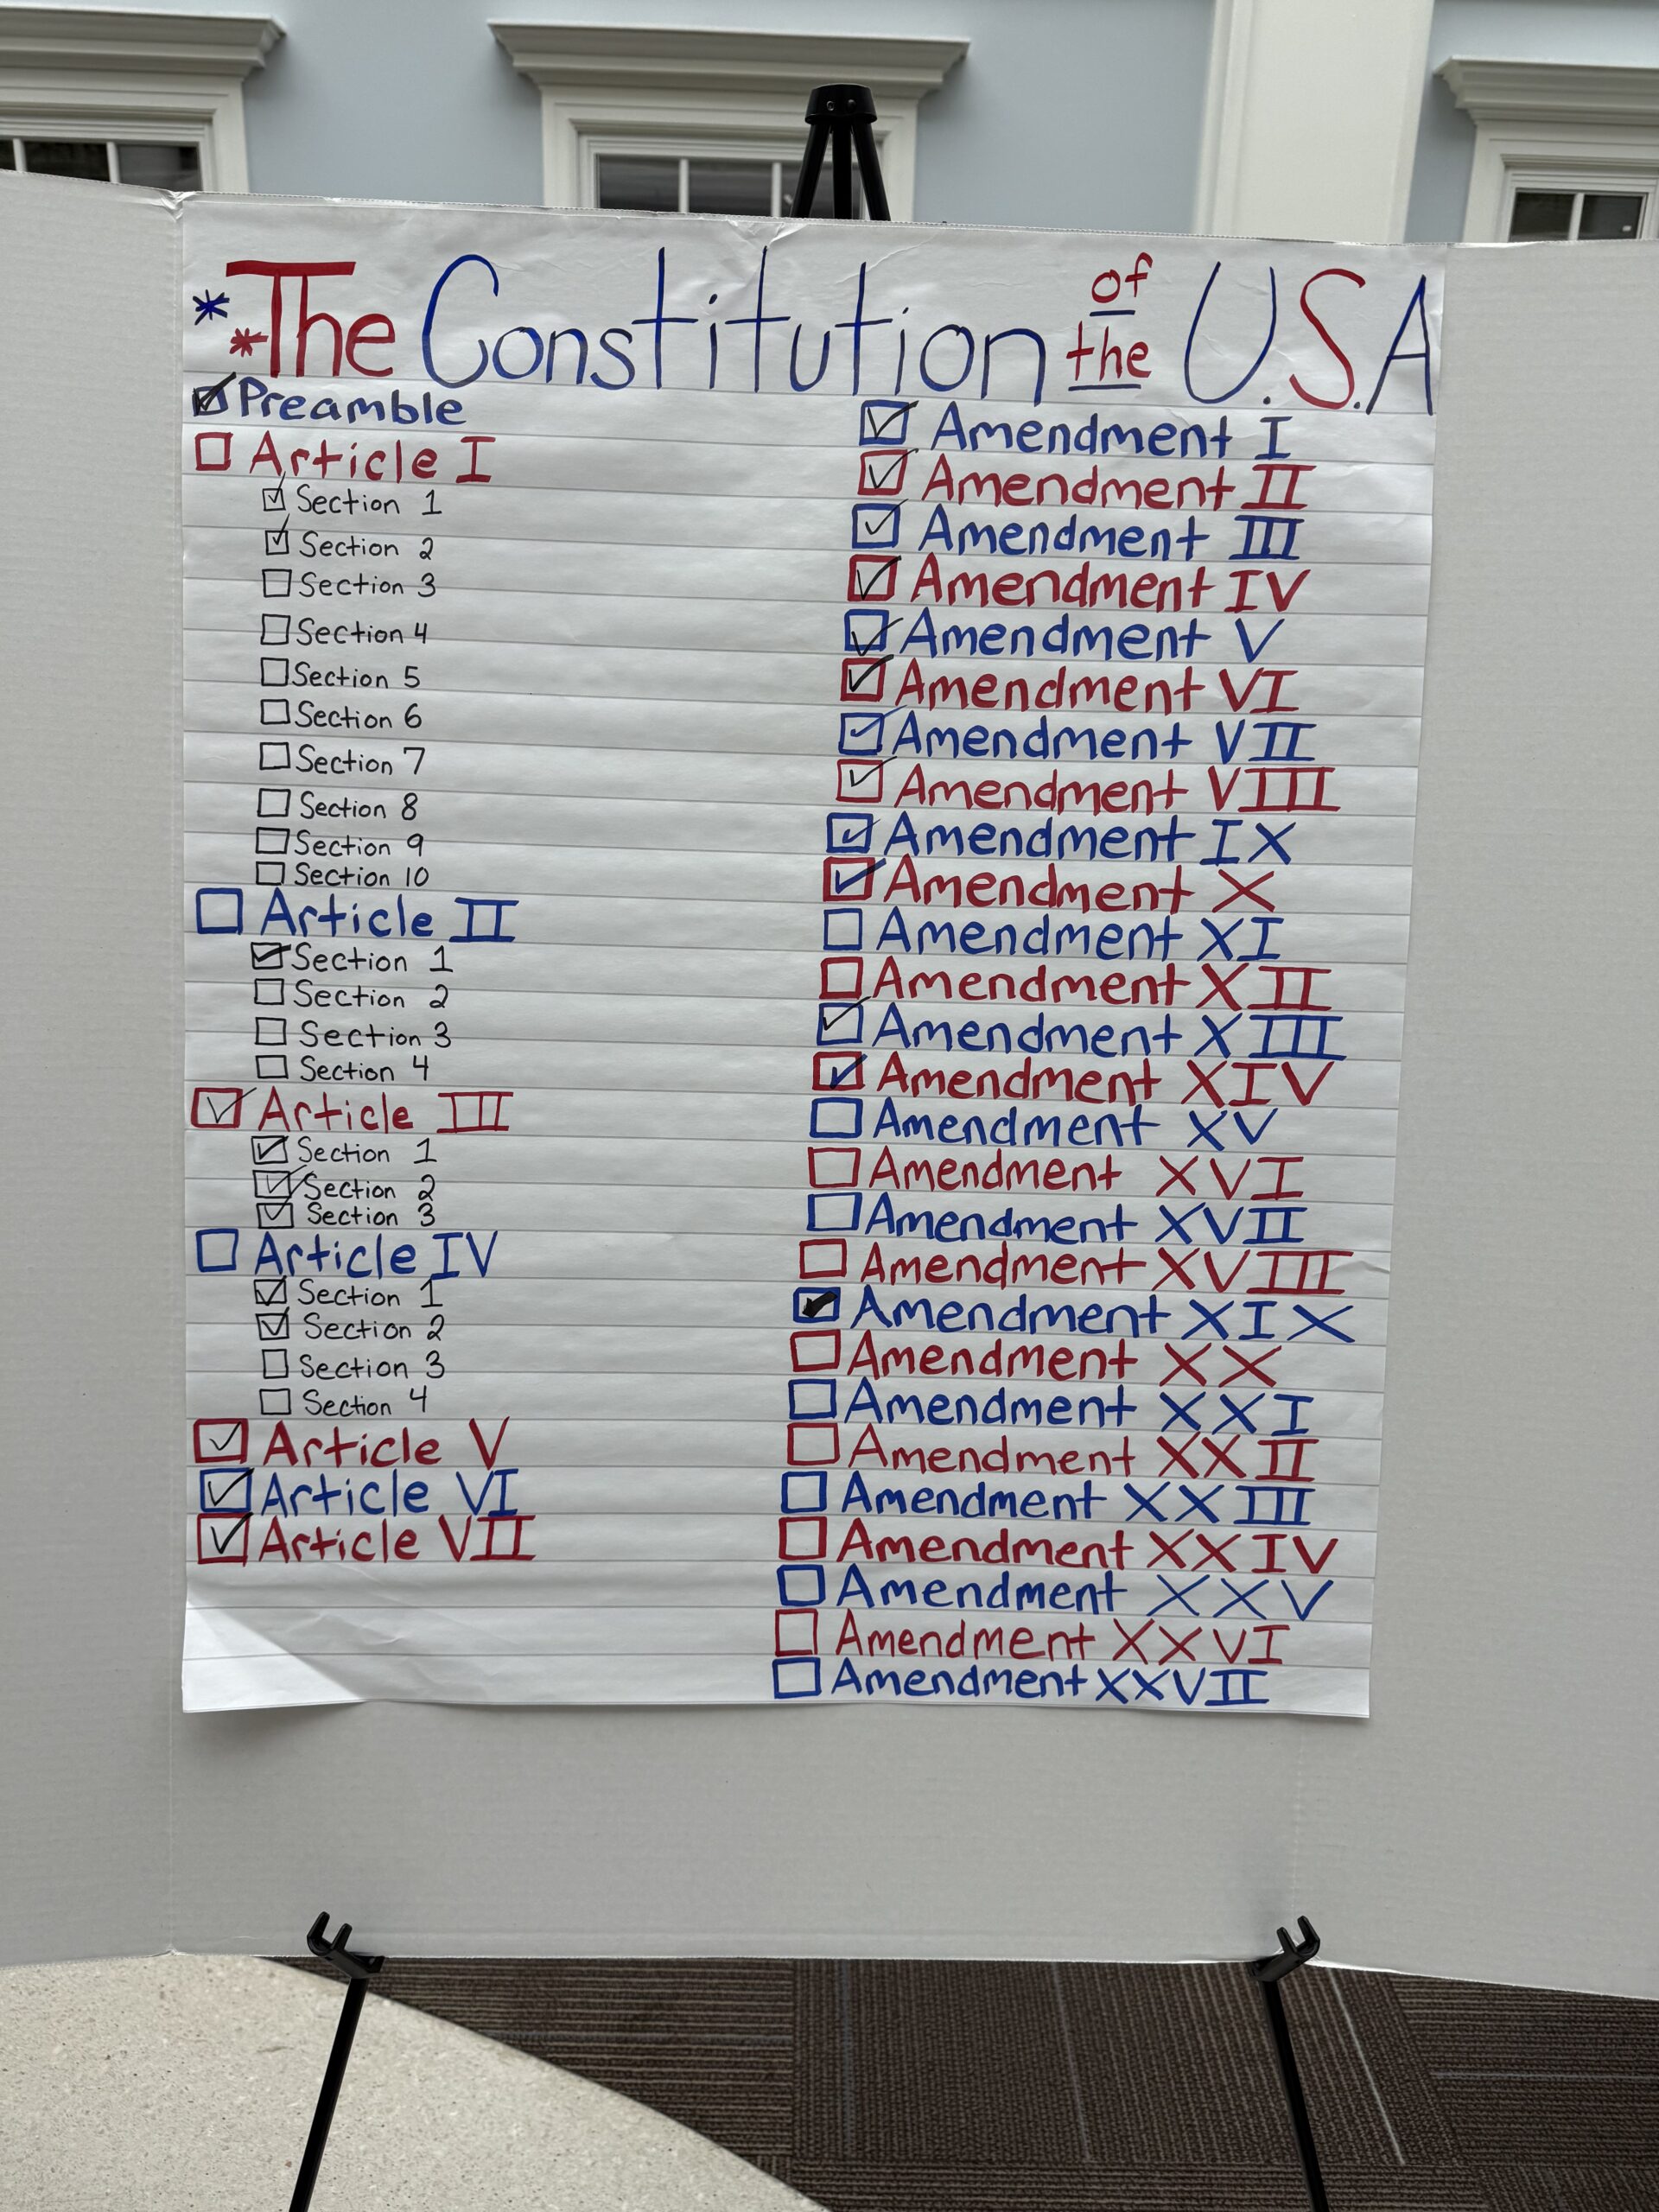 **The Constitution of the U.S.A
Preamble
Article I
Section 1
Section 2
Section 3
Section 4
Section 5
Section 6
Section 7
Section 8
Section 9
Section 10
Article II
Section 1
Section 2
Section 3
Section 4
Article III
Section 1
Section 2
Section 3
Article IV
Section 1
Section 2
Section 3
Section 4
Article V
Article VI
Article VII
Amendment I
Amendment II
Amendment III
Amendment IV
Amendment V
Amendment VI
Amendment VII
Amendment VIII
Amendment IX
Amendment X
Amendment XI
Amendment XII
Amendment XIII
Amendment XIV
Amendment XV
Amendment XVI
Amendment XVII
Amendment XVIII
Amendment XIX
Amendment XX
Amendment XXI
Amendment XXII
Amendment XXIII
Amendment XXIV
Amendment XXV
Amendment XXVI
Amendment XXVII